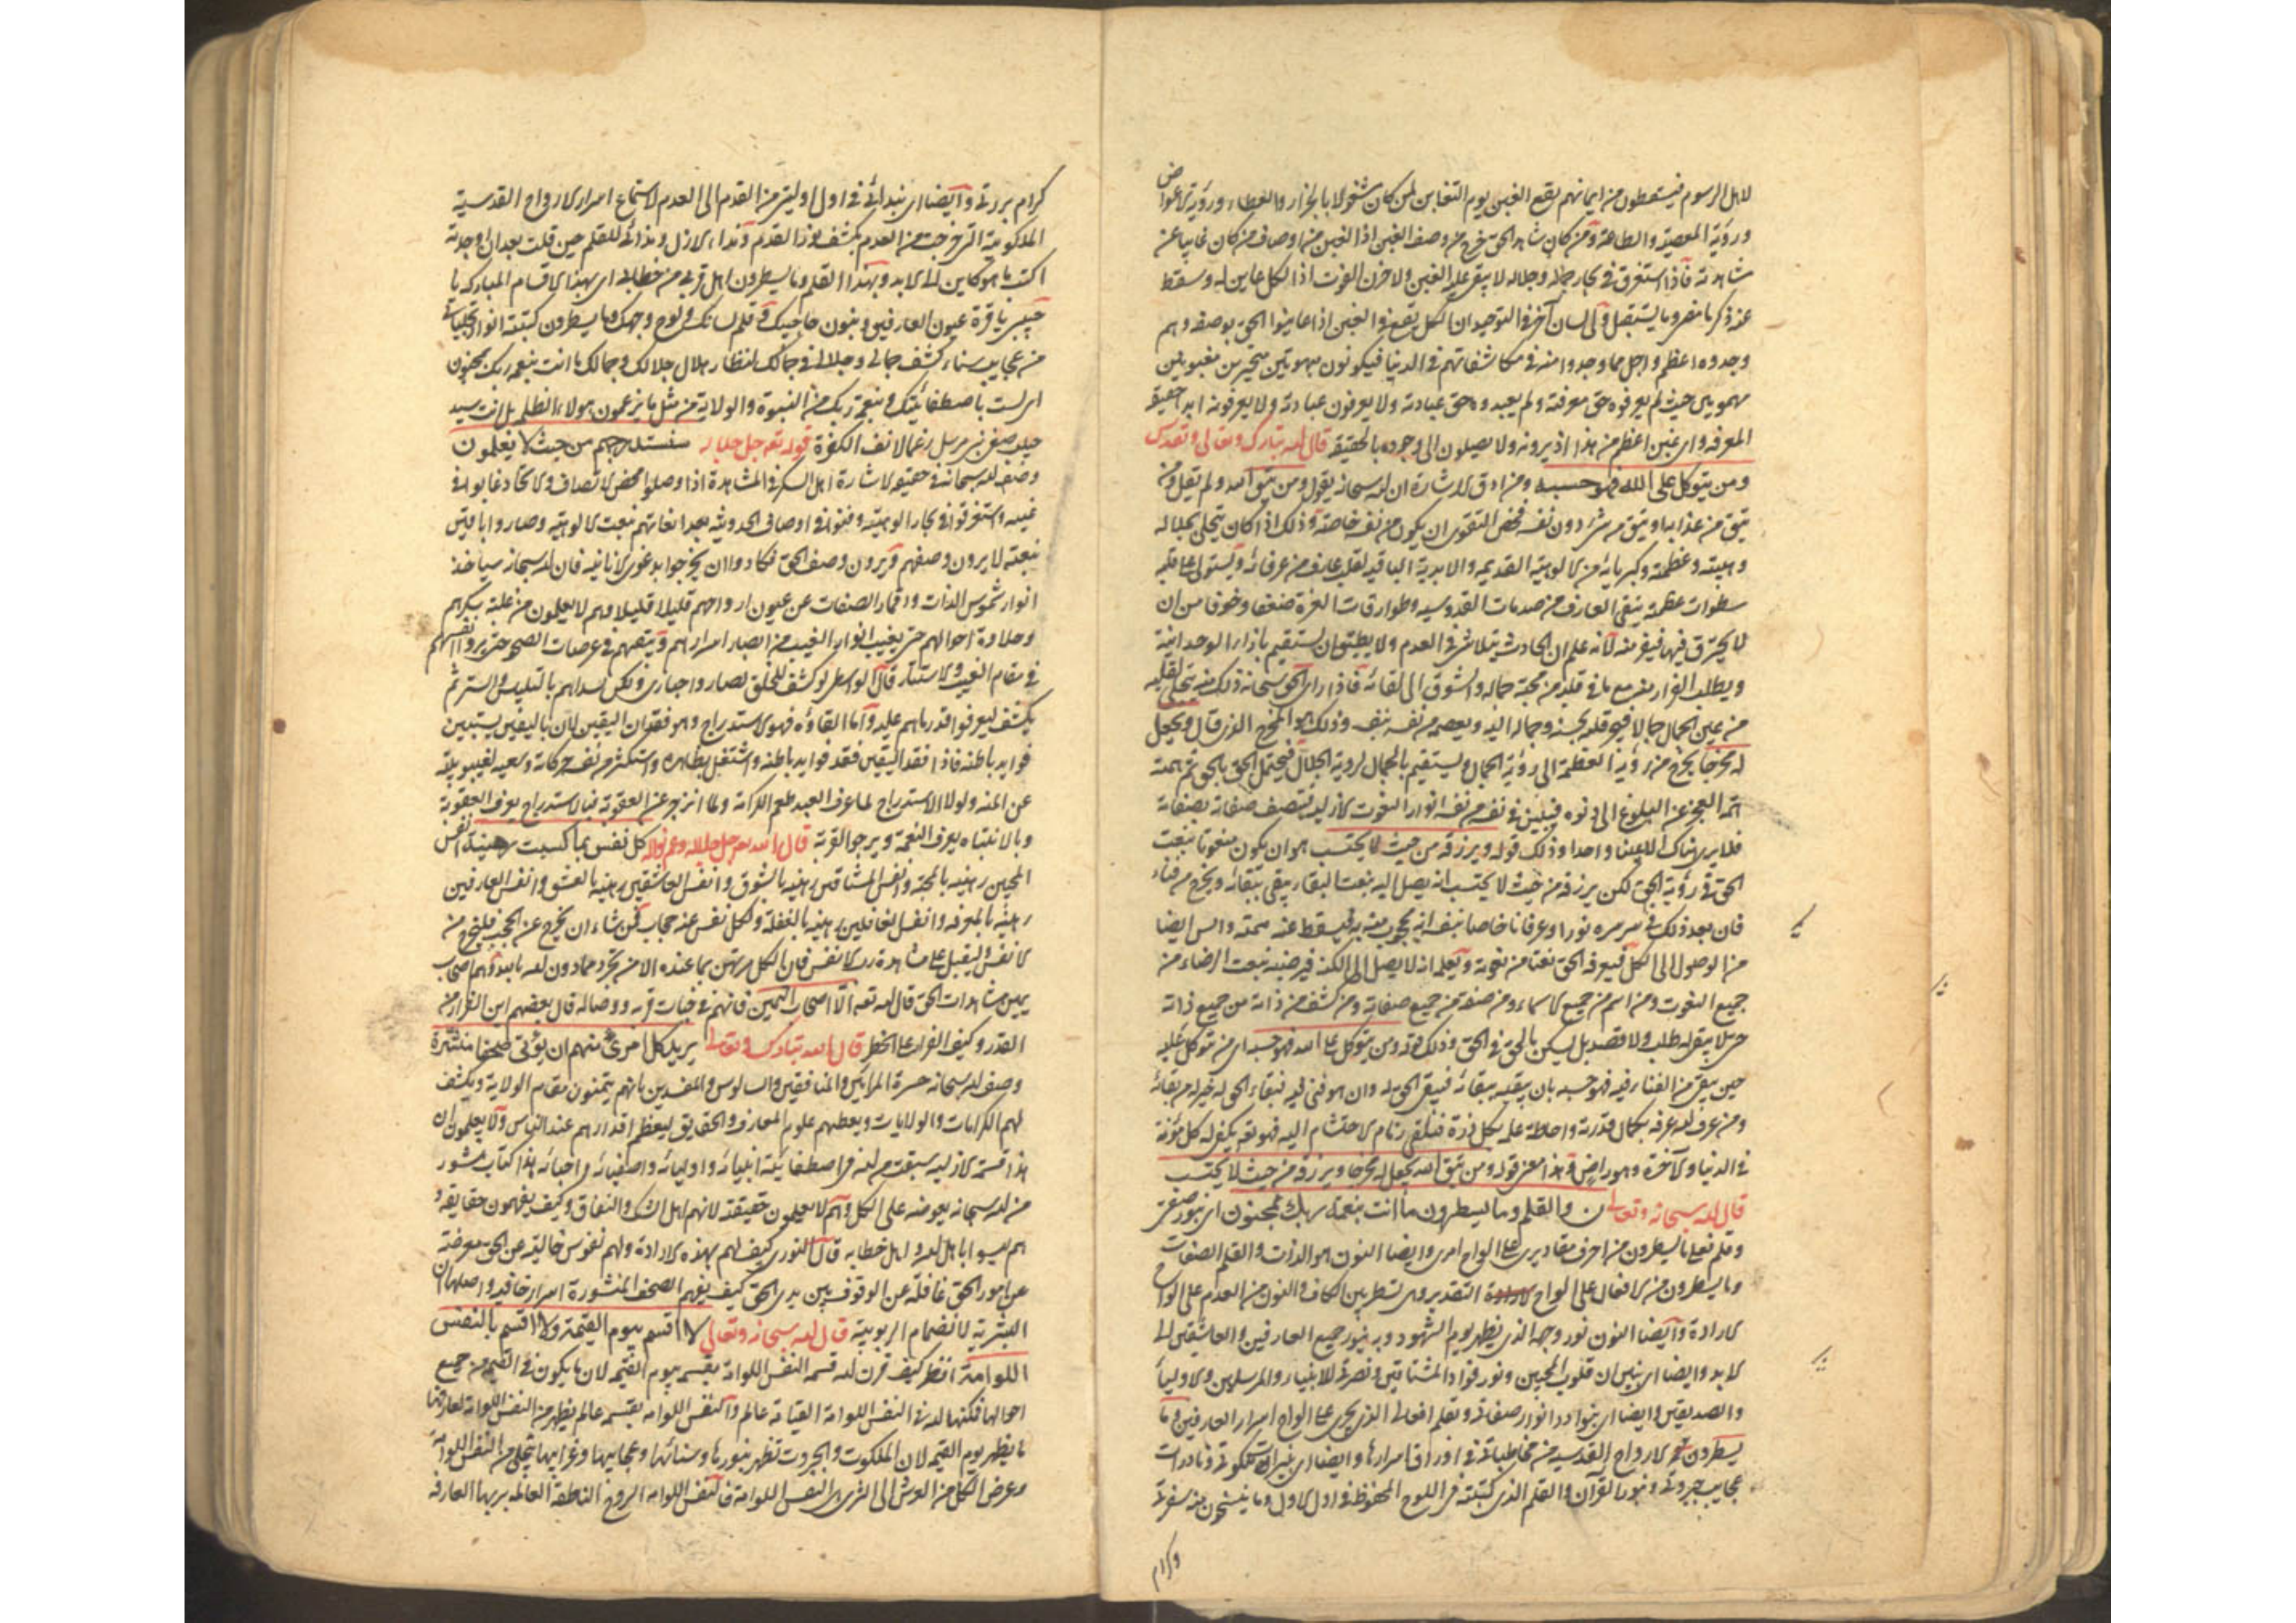 لاهل الرسوم فيسقطون من ايمانهم يقع الغبن يوم التغابن لمن كان مشغولا بالجزاء والعطاء ورؤية الاعواض
ورؤية المعصية والطاعة ومن كان شاهد الحق خرج من وصف الغبن اذ الغبن من اوصاف من كان غايبا عن
مشاهدته فاذا استغرق في بحار جماله وجلاله لا يبقى عليه الغبن ولا حزن الفوت اذ الكل عاين له وسقط
عنه ذكر ما مضى وما يستقبل وقال لسان آخر في التوحيد ان الكل يقع في الغبن اذا عاينوا الحق بوصفه وهم
وجدوه اعظم واجل مما وجدوا منه في مكاشفاتهم في الدنيا فيكونون مبهوتين متحيرين مغبونين
حيث لم يعرفوه حق معرفته ولم يعبدوه حق عبادته ولا يعرفون عبادته ولا يعرفونه ابدا حقيقة
المعرفة واى غبن اعظم من هذا اذ يرونه ولا يصلون الى وجوده بالحقيقة قال الله تبارك وتعالى وتقدس
ومن يتوكل على الله فهو حسبه ومن ادق الاشارة ان الله سبحانه يقول ومن يتق الله ولم يقل ومن
يتق من عذابها ويتق من شئ دون نفسه فخص التقوى ان يكون من نفسه خاصة وذلك اذا كان يتجلى بجلاله
وهيبته وعظمته وكبريائه من الالوهية القديمة والابدية الباقية لقلب عارف من عرفائه ويستولى على قلبه
سطوات عظمته يتقى العارف من صدمات القدوسية وطوارقات العزة ضعفا وخوفا من ان
لا يحترق فيها فيفر منه لانه علم ان الحادث يتلاشى في العدم ولا يطيق ان يستقيم بازاء الوحدانية
ويطلب الفرار منه مع ما في قلبه من محبة جماله والشوق الى لقائه فاذا راى الحق سبحانه ذلك منه تجلى لقلبه
من عين الجمال جمالا فيجر قلبه بحسنه وجماله اليه ويعصمه من نفسه بنفسه وذلك هو المخرج الذى قال ويجعل
له مخرجا يخرج من رؤية العظمة الى رؤية الجمال ويستقيم بالجمال لرؤية الجلال فيحتمل الحق بالحق ثم
العجز عن البلوغ الى نفسه من نفسه انوار النعوت الازلية ليتصف صفاته بصفاته
فلا يرى هناك الا عينا واحدا وذلك قوله ويرزقه من حيث لا يحتسب هو ان يكون منعوتا بنعت
الحق في رؤية الحق لكن يرزقه من حيث لا يحتسب انه يصل اليه بنعت البقاء يبقى ببقائه ويخرج من فناء
فان بعد ذلك في سره نورا وعرفانا خاصا
من الوصول الى الكل فيعرفه الحق نعتا من نعوته ويعلمه انه لا يصل الى الكنه فيرضيه بنعت الرضاء من
جميع النعوت ومن اسم من جميع الاسماء ومن صفة من جميع صفاته ومن كشف من ذاته من جميع ذاته
حتى لا يبقى له طلب ولا قصد بل يسكن بالحق في الحق وذلك قوله ومن يتوكل على الله فهو حسبه اى من توكل عليه
حين يبقى من الفناء فيه فهو حسبه بان يبقيه ببقائه فيبقى الحق له وان هو فنى فيه فبقاء الحق له خير له من بقائه
ومن عرف الله عرفه بكمال قدرته واحاطة علمه بكل ذرة فيلقى زمام الاحتشام اليه فهو تعه يكفى له كل مؤنة
في الدنيا والآخرة وهو راض وهذا معنى قوله ومن يتق الله يجعل له مخرجا ويرزقه من حيث لا يحتسب
قال الله سبحانه وتعالى ن والقلم وما يسطرون ما انت بنعمة ربك بمجنون اى بنور صفتى
وقلم فعلى ما يسطرون من احرف مقاديرى على الواح امرى وايضا النون هو الذات والقلم الصفات
وما يسطرون من الافعال على الواح التقدير وهى تسطر بين الكاف والنون من العدم على الواح
الارادة وايضا النون نور وجهه الذى يظهر يوم الشهود وبه ينور جميع العارفين والعاشقين الى
الابد وايضا اى بنيران قلوب المحبين ونور فؤاد المشتاقين ونصرتى للانبياء والمرسلين والاولياء
والصديقين وايضا اى بنوادر انوار صفاتى وبقلم افعالى الذى يجرى على الواح اسرار العارفين وما
يسطرون الارواح القدسية من مخاطباتى في اوراق اسرارها وايضا اى بنيرات ملكوتى ونادرات
عجايب جبروتى وبنور القرآن والقلم الذى كتبته في اللوح المحفوظ في اول الاول وما ينسخون منه سفرتى
وكرام
كرام بررتى وايضا اى بندائى في اول اوليتى من القدم الى العدم لاستماع اسرار الارواح القدسية
الملكوتية التى خرجت من العدم بكشف نور القدم ونداء الازل وندائى للقلم حين قلت بعد ان اوجدته
اكتب ما هو كاين الى الابد وبهذا القلم وما يسطرون اهل قربى من خطابى اى بهذه الاقسام المباركة يا
حبيبى يا قرة عيون العارفين وبنون حاجبيك وقلم لسانك ولوح وجهك وما يسطرون كتبته انوار تجليات
من عجايب سناء كشف جمالى وجلالى في جمالك لنظار هلال جلالك وجمالك ما انت بنعمة ربك بمجنون
اى لست باصطفائيتك وبنعمة ربك من النبوة والولاية من مثل ما يزعمون هولاء الظلمة بل انت سيد
حبيب صفى نبى مرسل رغما لانف الكفرة قوله تعه جل جلاله سنستدرجهم من حيث لا يعلمون
وصف الله سبحانه في حقيقة الاشارة اهل السكر في المشاهدة اذا وصلوا محض الاتصاف والاتحاد غابوا في
غيبه واستغرقوا في بحار الوهيته وفنوا في اوصاف الحدوثية بعد اتصافهم بنعت الالوهية وصاروا باقين
بنعته لا يرون وصفهم ويرون وصف الحق فكادوا ان يخرجوا بدعوى الانانية فان الله سبحانه سياخذ
انوار شموس الذات واقمار الصفات عن عيون ارواحهم قليلا قليلا وهم لا يعلمون من غلبة سكرهم
وحلاوة احوالهم حتى يغيب انوار الغيب من ابصار اسرارهم ويبقيهم في عرصات الصحو حتى يروا انفسهم
في مقام الغيبة والاستتار قال الواسطى لو كشف للخلق لصاروا حيارى ولكن ابداهم بالتلبيس والستر ثم
يكشف ليعرفوا قدر ما هم عليه واما القاؤه فهو الاستدراج وهو فقدان اليقين لان باليقين يستبين
فوايد باطنه فاذا فقد اليقين فقد فوايد باطنه واشتغل بظاهره واستكثر من نفسه حركاته وسعيه لغيبوبيته
عن المنة ولولا الاستدراج لما عرف العبد طعم الكرامة ولما انزجر عن العقوبة فبالاستدراج يعرف العقوبة
وبالانتباه يعرف النعمة ويرجو القربة قال الله تعه جل جلاله وعم نواله كل نفس بما كسبت رهينة انفس
المحبين رهينه بالمحبة وانفس المشتاقين رهينه بالشوق وانفس العاشقين رهينه بالعشق وانفس العارفين
رهينه بالمعرفه وانفس الغافلين رهينه بالغفلة ولكل نفس عنده حجاب فمن شاء ان يخرج عن الحجب فليخرج من
الانفس وليقبل على مشاهدة رب الانفس فان الكل مرتهن بما عنده الا من تجرد عما دون الله بالله وهم اصحاب
يمين مشاهدات الحق قال الله تعه الا اصحاب اليمين فانهم في جنات قربه ووصاله قال بعضهم اين الفرار من
القدر وكيف القرار على الخطر قال الله تبارك وتعالى بل يريد كل امرئ منهم ان يؤتى صحفا منشرة
وصف الله سبحانه حسرة المرائين والمنافقين والسالوس والمفسدين بانهم يتمنون مقام الولاية ويكشف
لهم الكرامات والولايات ويعطيهم علوم المعارف والحقايق ليعظم اقدارهم عند الناس ولا يعلمون ان
هذا قسمة الازلية سبقت من الله في اصطفائية انبيائه واوليائه واصفيائه واحبائه هذا كتاب منشور
من الله سبحانه يعرضه على الكل وهم لا يعلمون حقيقته لانهم اهل الشك والنفاق وكيف يفهمون حقايقه و
هم ليسوا باهل الله واهل خطابه قال النورى كيف لهم بهذه الارادة ولهم نفوس خالية عن الحق معرضة
عن امور الحق غافلة عن الوقوف بين يدى الحق كيف يفهم الصحف المنشورة اسرار خافية واصلها ان
البشرية لانضمام الربوبية قال الله سبحانه وتعالى لا اقسم بيوم القيمة ولا اقسم بالنفس
اللوامة انظر كيف قرن الله قسم النفس اللوامة بقسم يوم القيمة لان ما يكون في القيمة من جميع
احوالها فكلها لله في النفس اللوامة القيامة عالم والنفس اللوامه بقسمه عالم يظهر من النفس اللوامة لعارفيها
ما يظهر يوم القيمة لان الملكوت والجبروت تظهر بنورها وسنائها وعجايبها وغرايبها يتجلى من النفس اللوامة
وعرض الكل من العرش الى الثرى في النفس اللوامة فالنفس اللوامه الروح الناطقة العالمة بربها العارفه